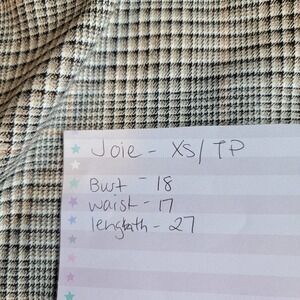 Joie - XS/TP
Bust - 18
waist - 17
length - 27